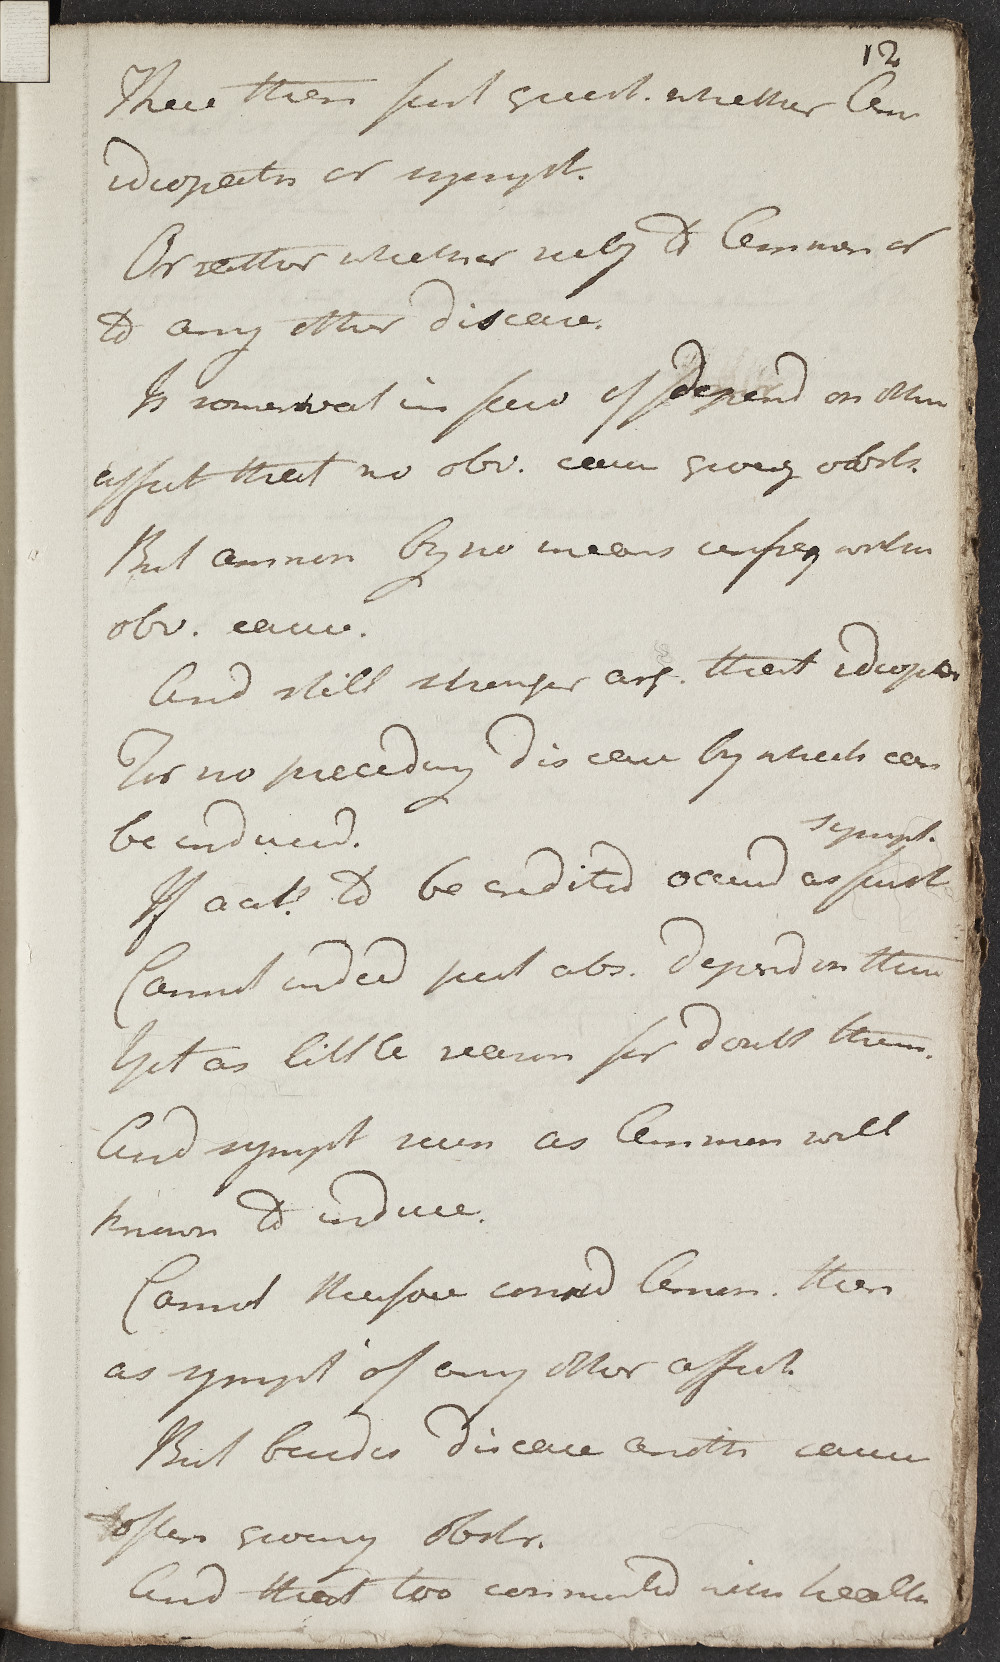 12
Here then first quest. whether Am
idiopath or sympt.
Or rather whether refer to Amenor or
to any other disease.
Is somewhat in favr of depend on other
affect that no obv. cause giving obstr.
But amenor by no means unfreq witht
obv. cause.
And still stronger arg. that idiopath
For no preceding disease by which can
be induced.
sympt.
If acct. to be credited occurd as first
Cannot indeed put abs. depend on them
Yet as little reason for doubt them.
And sympt such as Amenor well
known to induce.
Cannot therefore consid Amenor. then
as sympt of any other affect.
But besides disease anoth cause
often giving obstr.
And that too connected with health